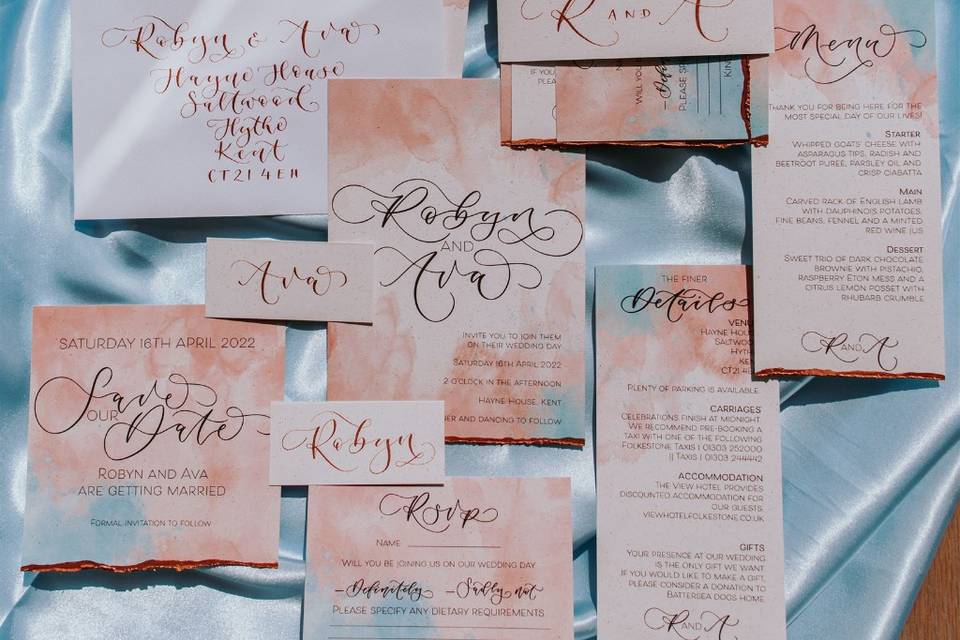 Robyn & Ava
Hayne House
Saltwood
Hythe
Kent
CT21 4EH
R AND A
IF YOU
WILL YOU
Defin
PLEASE SPE
Menu
THANK YOU FOR BEING HERE FOR THE
MOST SPECIAL DAY OF OUR LIVES!
STARTER
WHIPPED GOATS' CHEESE WITH
ASPARAGUS TIPS, RADISH AND
BEETROOT PUREE, PARSLEY OIL AND
CRISP CIABATTA
MAIN
CARVED RACK OF ENGLISH LAMB
WITH DAUPHINOIS POTATOES,
FINE BEANS, FENNEL AND A MINTED
RED WINE JUS
DESSERT
SWEET TRIO OF DARK CHOCOLATE
BROWNIE WITH PISTACHIO,
RASPBERRY ETON MESS AND A
CITRUS LEMON POSSET WITH
RHUBARB CRUMBLE
R AND A
Robyn
AND
Ava
INVITE YOU TO JOIN THEM
ON THEIR WEDDING DAY
SATURDAY 16TH APRIL 2022
2 O'CLOCK IN THE AFTERNOON
HAYNE HOUSE, KENT
NER AND DANCING TO FOLLOW
Ava
Robyn
SATURDAY 16TH APRIL 2022
Save
OUR
Date
ROBYN AND AVA
ARE GETTING MARRIED
FORMAL INVITATION TO FOLLOW
Rsvp
NAME:
WILL YOU BE JOINING US ON OUR WEDDING DAY
Definitely Sadly not
PLEASE SPECIFY ANY DIETARY REQUIREMENTS
THE FINER
Details
VENU
HAYNE HOUSE
SALTWOO
HYTH
KEN
CT21 4E
PLENTY OF PARKING IS AVAILABLE.
CARRIAGES
CELEBRATIONS FINISH AT MIDNIGHT.
WE RECOMMEND PRE-BOOKING A
TAXI WITH ONE OF THE FOLLOWING
FOLKESTONE TAXIS | 01303 252000
|| TAXIS | 01303 244442
ACCOMMODATION
THE VIEW HOTEL PROVIDES
DISCOUNTED ACCOMMODATION FOR
OUR GUESTS.
VIEWHOTELFOLKESTONE.CO.UK
GIFTS
YOUR PRESENCE AT OUR WEDDING
IS THE ONLY GIFT WE WANT.
IF YOU WOULD LIKE TO MAKE A GIFT,
PLEASE CONSIDER A DONATION TO
BATTERSEA DOGS HOME.
R AND A